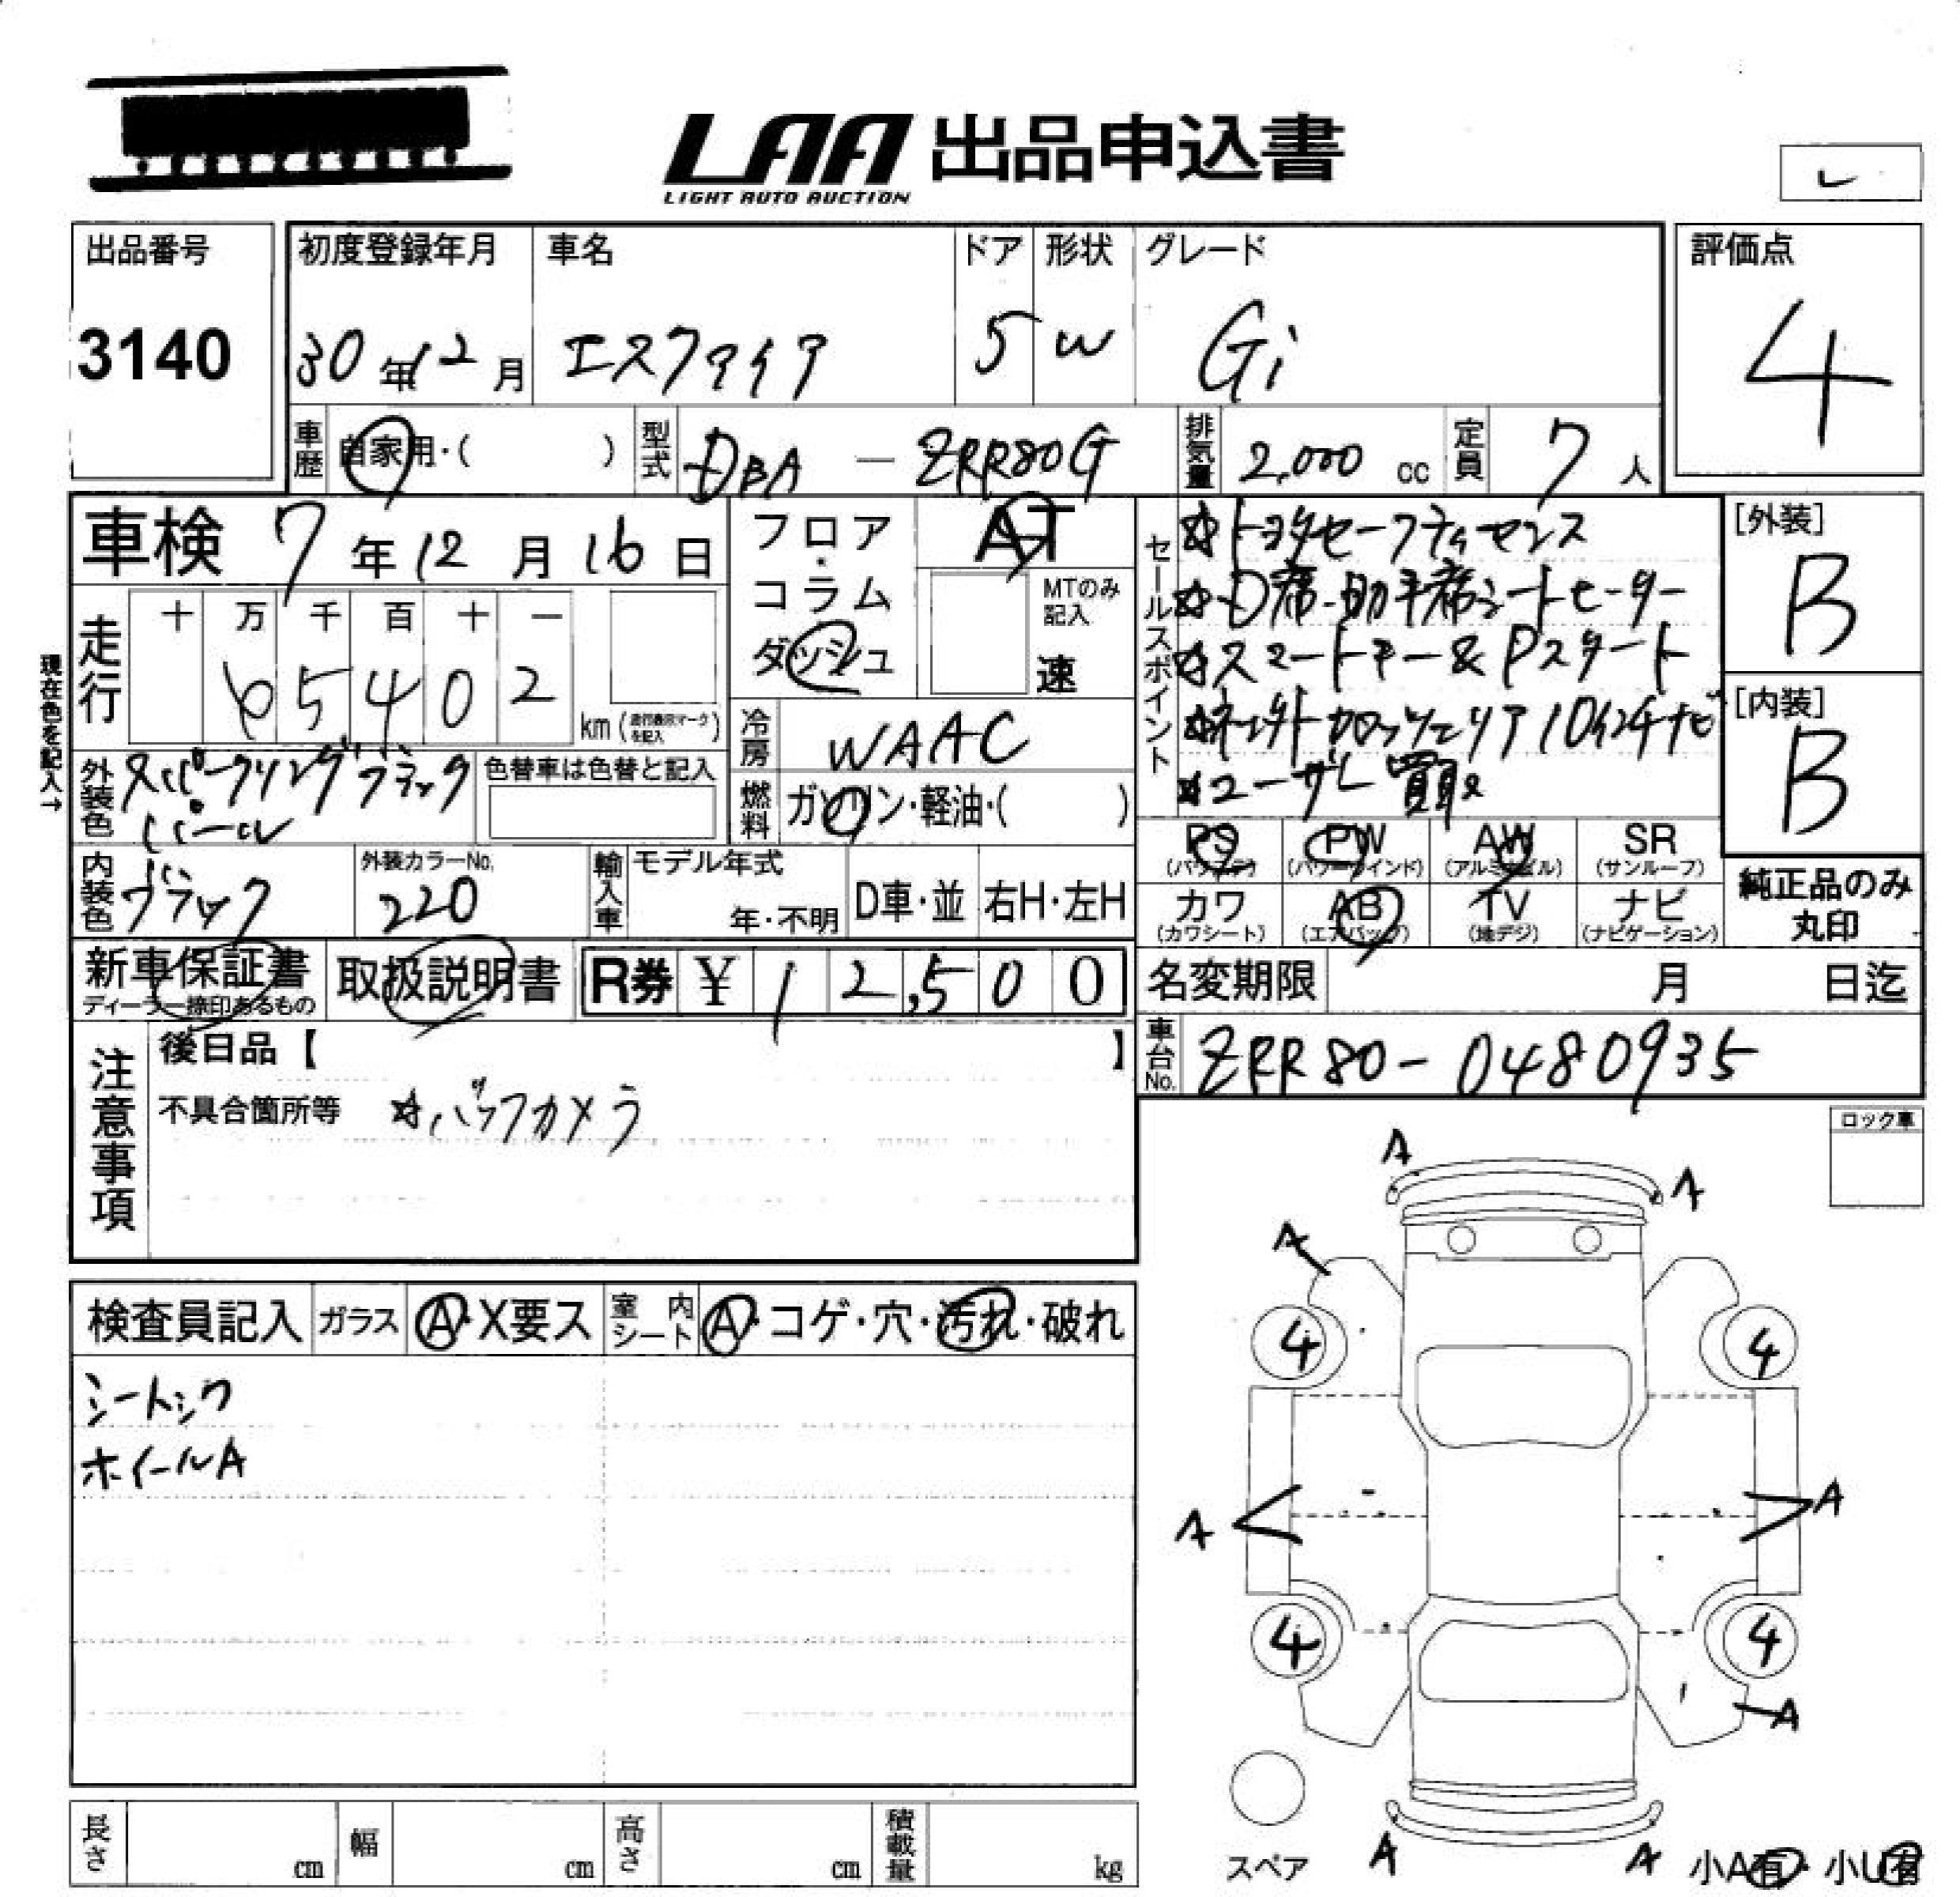 LAA 出品申込書
LIGHT AUTO AUCTION
出品番号
3140
初度登録年月
30年12月
車名
エスクァイア
ドア
5
形状
W
グレード
Gi
評価点
4
車歴
自家用・( )
型式
DBA - ZRR80G
排気量
2,000 cc
定員
7人
車検 7年12月16日
フロア・コラム
ダッシュ
AT
MTのみ記入
速
セールスポイント
☆トヨタセーフティセンス
☆D席・助手席シートヒーター
☆スマートキー&Pスタート
☆カロッツェリア10インチナビ
☆ユーザー買取
[外装]
B
[内装]
B
現在色を記入→
走行
十 万 千 百 十 一
65402
km(走行表示マークを記入)
冷房
WAAC
燃料
ガソリン・軽油・( )
外装色
スパークリングブラック
パール
色替車は色替と記入
内装色
ブラック
外装カラーNo.
220
輸入車
モデル年式
年・不明
D車・並
右H・左H
PS
(パワステ)
PW
(パワーウインド)
AW
(アルミホイル)
SR
(サンルーフ)
カワ
(カワシート)
AB
(エアバッグ)
TV
(地デジ)
ナビ
(ナビゲーション)
純正品のみ
丸印
新車保証書
ディーラー捺印あるもの
取扱説明書
R券 ¥ 12,500
名変期限 月 日迄
車台No.
ZRR80-0480935
注意事項
後日品【 】
不具合箇所等 ☆バックカメラ
ロック車
検査員記入
ガラス
A・X要ス
室内シート
A・コゲ・穴・汚れ・破れ
シートシワ
ホイールA
A
A
A
4
4
A
A
4
4
A
スペア
A
A
小A有・小U有
長さ cm
幅 cm
高さ cm
積載量 kg